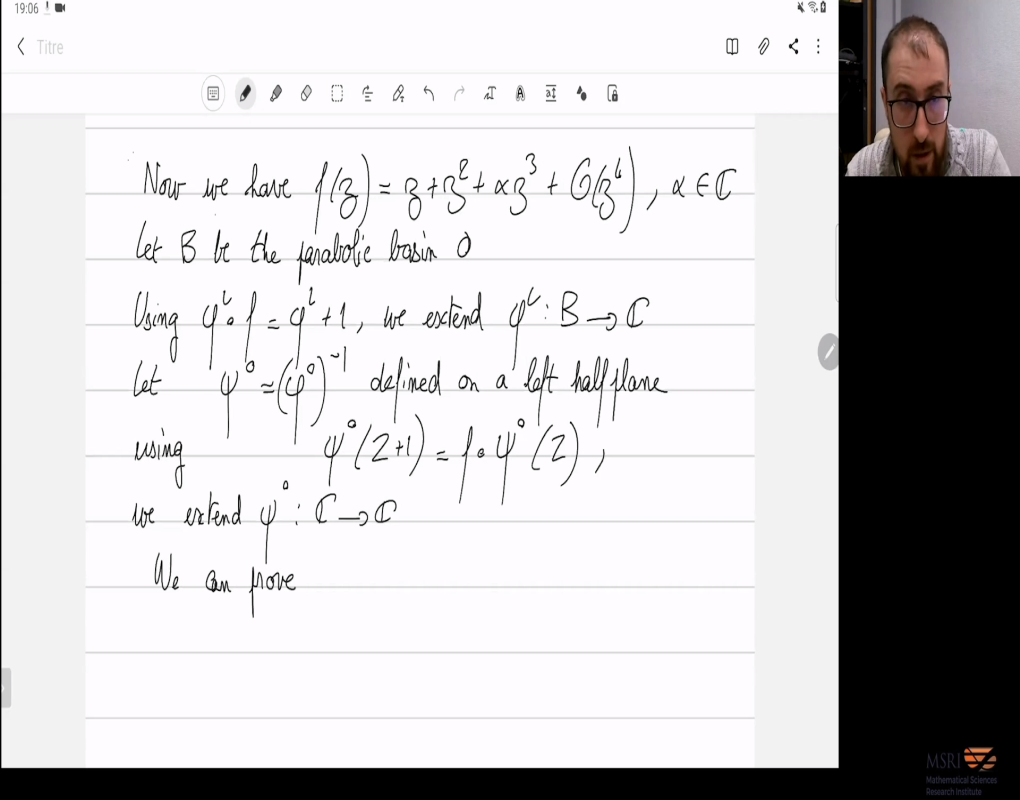 19:06
Titre
Now we have f(z) = z + z² + αz³ + O(z⁴), α ∈ ℂ
Let B be the parabolic basin 0
Using φᶫ∘f = φᶫ + 1, we extend φᶫ : B → ℂ
Let ψ⁰ = (φ⁰)⁻¹ defined on a left half plane
using ψ⁰(Z+1) = f∘ψ⁰(Z),
we extend ψ⁰ : ℂ → ℂ
We can prove
MSRI
Mathematical Sciences
Research Institute